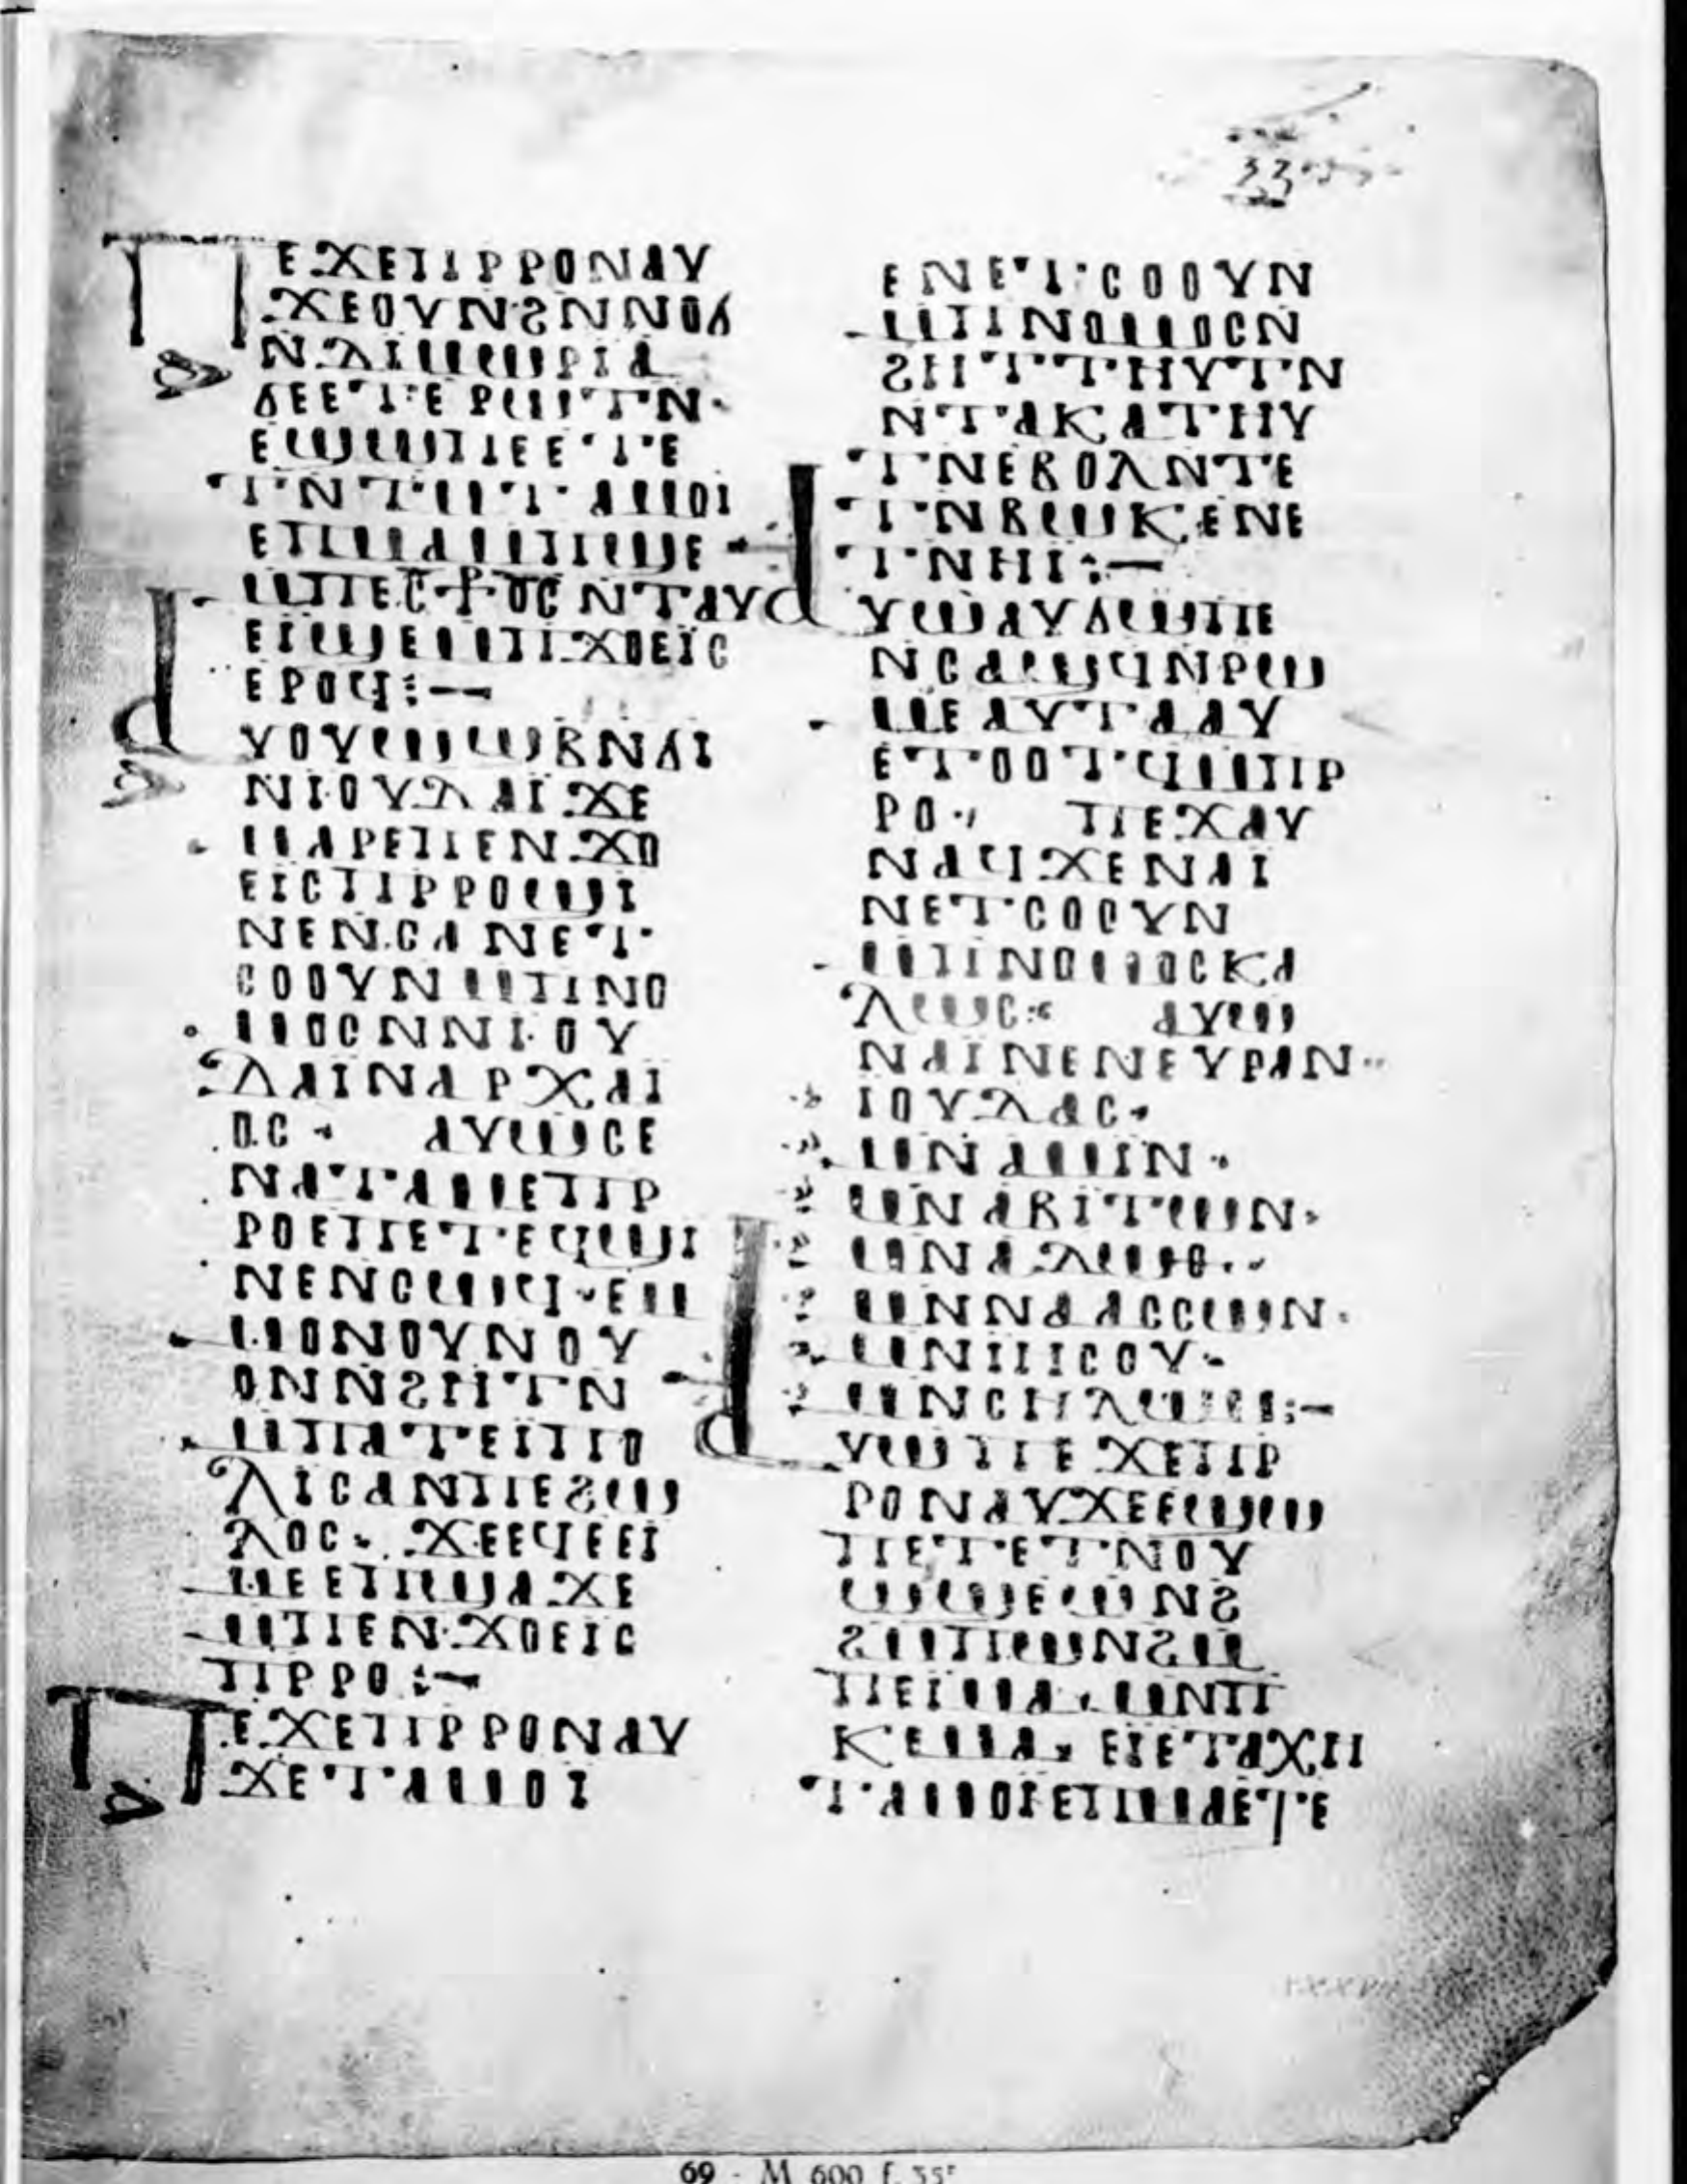 ⲡⲉϫⲉⲡⲣⲣⲟⲛⲁⲩ
ϫⲉⲟⲩⲛϩⲛⲛⲟϭ
ⲛⲇⲓⲙⲱⲣⲓⲁ
ϭⲉⲉⲧⲉⲣⲱⲧⲛ·
ⲉϣⲱⲡⲉⲉⲧⲉ
ⲧⲛⲧⲙⲧⲁⲙⲟⲓ
ⲉⲡⲙⲁⲙⲡϣⲉ
ⲙⲡⲉⲥ⳨ⲟⲥⲛⲧⲁⲩ
ⲉⲓϣⲉⲙⲡϫⲟⲉⲓ̈ⲥ
ⲉⲣⲟϥ:—
ⲁⲩⲟⲩⲱϣⲃⲛϭⲓ
ⲛⲓⲟⲩⲇⲁⲓ̈ϫⲉ
ⲙⲁⲣⲉⲡⲉⲛϫⲟ
ⲉⲓⲥⲡⲣⲣⲟϣⲓ
ⲛⲉⲛⲥⲁⲛⲉⲧ
ⲥⲟⲟⲩⲛⲙⲡⲛⲟ
ⲙⲟⲥⲛⲛⲓⲟⲩ
ⲇⲁⲓⲛⲁⲣⲭⲁⲓ
ⲟⲥ· ⲁⲩⲱⲥⲉ
ⲛⲁⲧⲁⲙⲉⲡⲣ
ⲣⲟⲉⲡⲉⲧⲉϥϣⲓ
ⲛⲉⲛⲥⲱϥ·ⲉⲙ
ⲙⲟⲛⲟⲩⲛⲟⲩ
ⲟⲛⲛϩⲏⲧⲛ
ⲙⲡⲁⲧⲉⲓⲡⲟ
ⲗⲓⲥⲁⲛⲡⲉϩⲱ
ⲗⲟⲥ· ϫⲉⲉϥⲉⲉⲓ
ⲙⲉⲉⲡϣⲁϫⲉ
ⲙⲡⲉⲛϫⲟⲉⲓⲥ
ⲡⲣⲣⲟ:—
ⲡⲉϫⲉⲡⲣⲣⲟⲛⲁⲩ
ϫⲉⲧⲁⲙⲟⲓ
ⲉⲛⲉⲧⲥⲟⲟⲩⲛ
ⲙⲡⲛⲟⲙⲟⲥⲛ
ϩⲏⲧⲧⲏⲩⲧⲛ
ⲛⲧⲁⲕⲁⲧⲏⲩ
ⲧⲛⲉⲃⲟⲗⲛⲧⲉ
ⲧⲛⲃⲱⲕⲉⲛⲉ
ⲧⲛⲏⲓ:—
ⲁⲩⲱⲁⲩϭⲱϣⲡⲉ
ⲛⲥⲁϣϥⲛⲣⲱ
ⲙⲉⲁⲩⲧⲁⲁⲩ
ⲉⲧⲟⲟⲧϥⲙⲡⲣ
ⲣⲟ· ⲡⲉϫⲁⲩ
ⲛⲁϥϫⲉⲛⲁⲓ
ⲛⲉⲧⲥⲟⲟⲩⲛ
ⲙⲡⲛⲟⲙⲟⲥⲕⲁ
ⲗⲱⲥ· ⲁⲩⲱ
ⲛⲁⲓⲛⲉⲛⲉⲩⲣⲁⲛ·
ⲓⲟⲩⲇⲁⲥ·
ⲙⲛⲁⲙⲓⲛ·
ⲙⲛⲁⲃⲓⲧⲱⲛ·
ⲙⲛⲁⲇⲱⲑ·
ⲙⲛⲛⲁⲁⲥⲥⲱⲛ·
ⲙⲛⲓⲏⲥⲟⲩ·
ⲙⲛⲥⲏⲗⲱⲙ:—
ⲁⲩⲱⲡⲉϫⲉⲡⲣ
ⲣⲟⲛⲁⲩϫⲉⲉϣⲱ
ⲡⲉⲧⲉⲧⲛⲟⲩ
ⲱϣⲉⲱⲛϩ
ϩⲙⲡⲱⲛϩⲙ
ⲡⲉⲓⲙⲁ·ⲙⲛⲡ
ⲕⲉⲙⲁ·ⲉⲓⲉⲧⲁⲭⲏ
ⲧⲁⲙⲟⲓⲉⲡⲙⲁⲉⲧⲉ
69 - M 600 f. 35ʳ